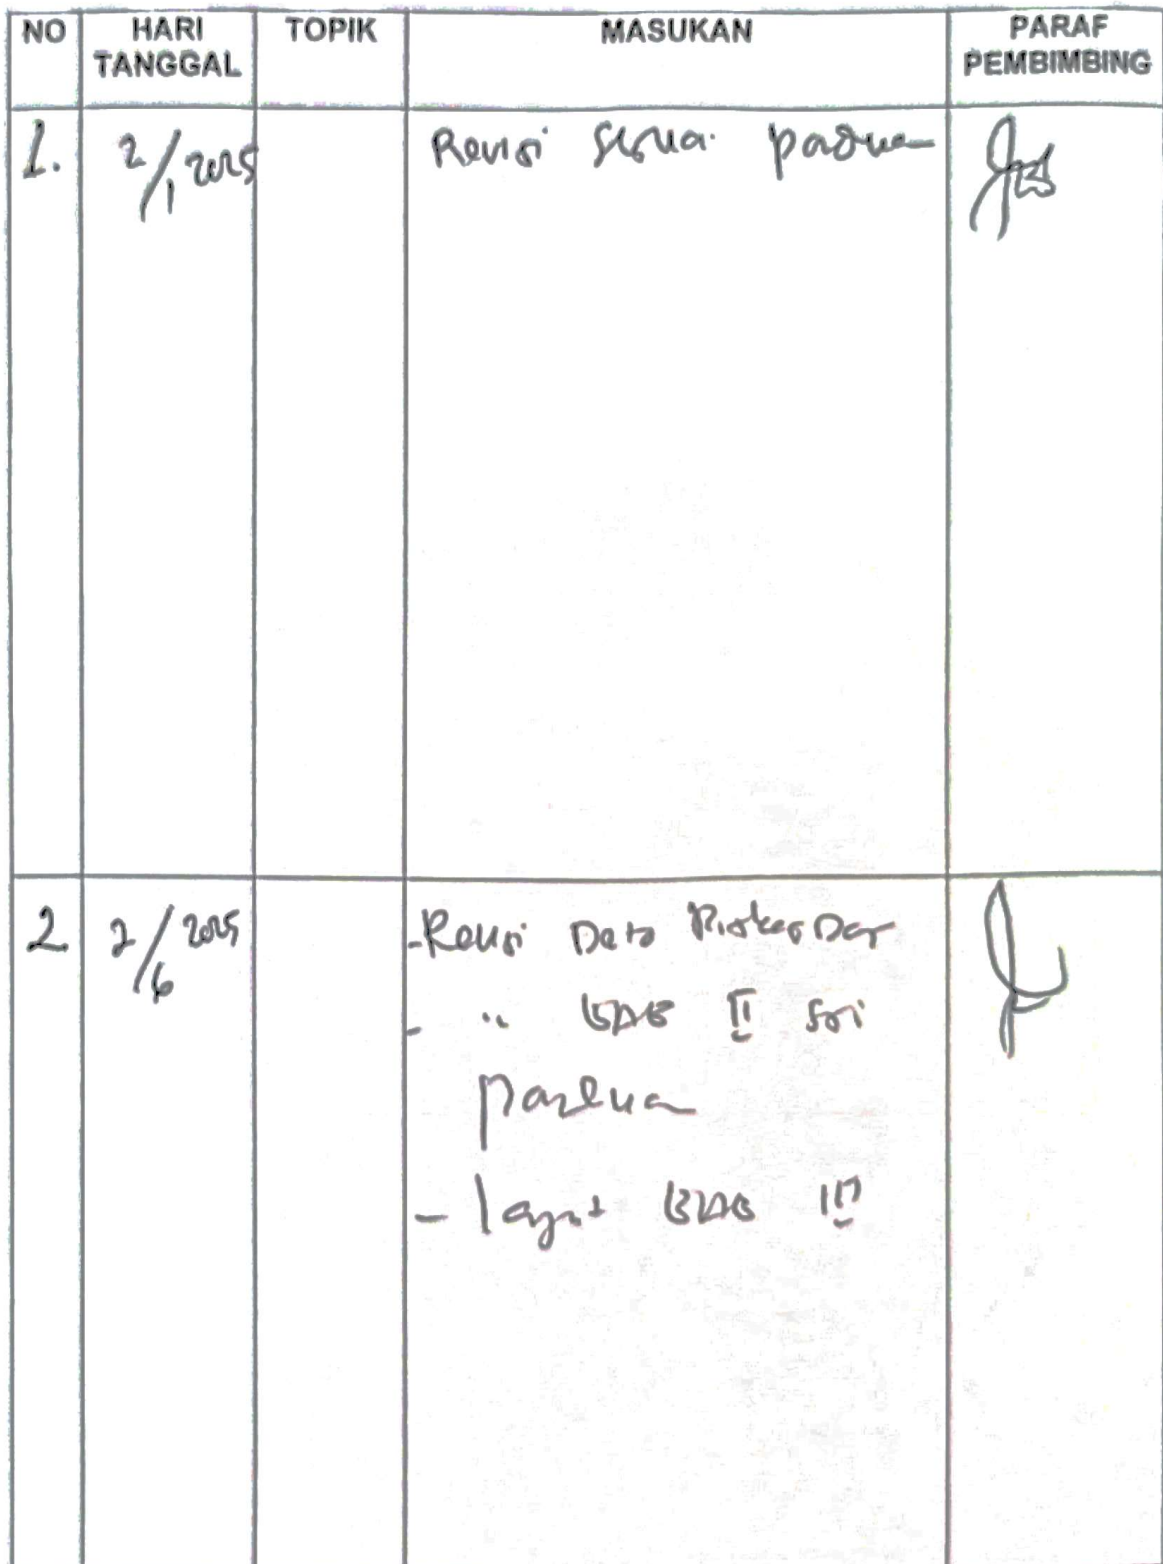 NO HARI TANGGAL TOPIK MASUKAN PARAF PEMBIMBING
1. 2/1 2025 Revisi sesuai panduan
2 2/6 2025 - Revisi Data Riskesdas
- " BAB II sri
panduan
- lanjut BAB III